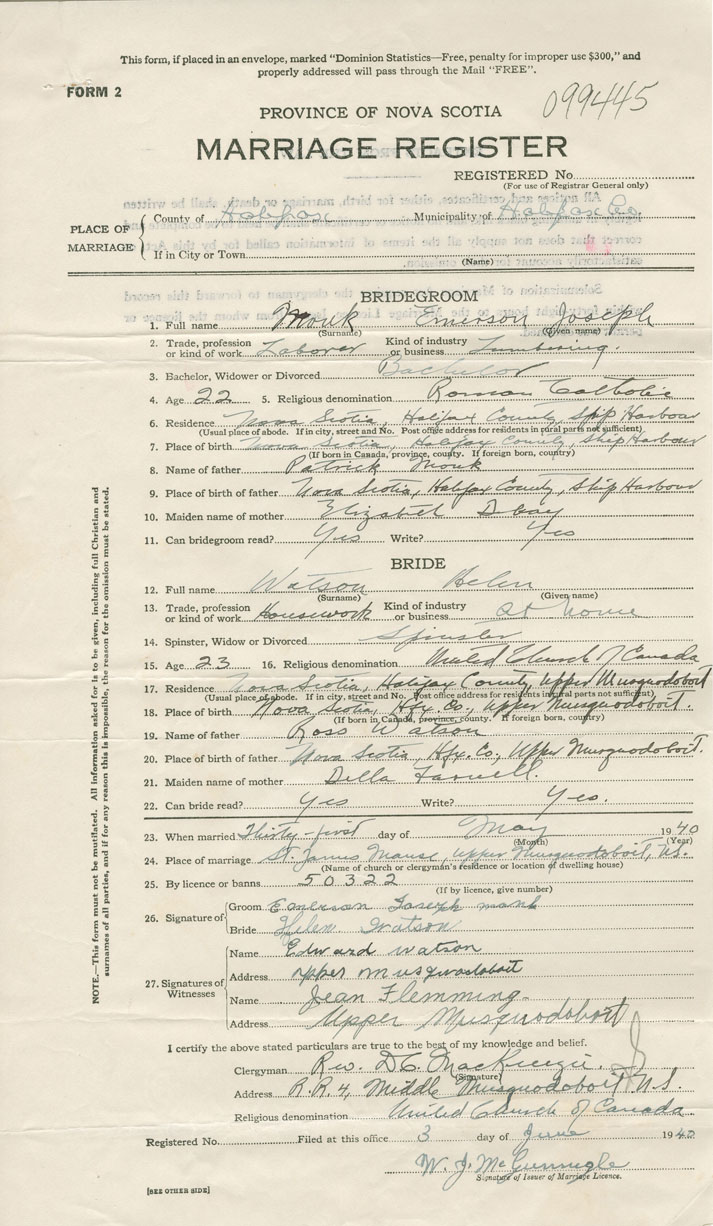 This form, if placed in an envelope, marked "Dominion Statistics—Free, penalty for improper use $300," and
properly addressed will pass through the Mail "FREE".
FORM 2
099445
PROVINCE OF NOVA SCOTIA
MARRIAGE REGISTER
REGISTERED No.
(For use of Registrar General only)
PLACE OF MARRIAGE
County of Halifax Municipality of Halifax Co.
If in City or Town
(Name)
BRIDEGROOM
1. Full name Monk Emerson Joseph
(Surname) (Given name)
2. Trade, profession or kind of work Laborer Kind of industry or business Lumbering.
3. Bachelor, Widower or Divorced Bachelor
4. Age 22 5. Religious denomination Roman Catholic
6. Residence Nova Scotia, Halifax County, Ship Harbour
(Usual place of abode. If in city, street and No. Post office address for residents in rural parts not sufficient)
7. Place of birth Nova Scotia, Halifax County, Ship Harbour
(If born in Canada, province, county. If foreign born, country)
8. Name of father Patrick Monk
9. Place of birth of father Nova Scotia, Halifax County, Ship Harbour
10. Maiden name of mother Elizabeth
11. Can bridegroom read? Yes Write? Yes
BRIDE
12. Full name Watson Helen
(Surname) (Given name)
13. Trade, profession or kind of work Housework Kind of industry or business at home
14. Spinster, Widow or Divorced Spinster
15. Age 23 16. Religious denomination United Church of Canada
17. Residence Nova Scotia, Halifax County, Upper Musquodoboit
(Usual place of abode. If in city, street and No. Post office address for residents in rural parts not sufficient)
18. Place of birth Nova Scotia, Hfx. Co., Upper Musquodoboit.
(If born in Canada, province, county. If foreign born, country)
19. Name of father Ross Watson
20. Place of birth of father Nova Scotia, Hfx. Co., Upper Musquodoboit.
21. Maiden name of mother Della Farnell.
22. Can bride read? Yes Write? Yes.
23. When married Thirty-first day of May 1940
(Month) (Year)
24. Place of marriage St. James Manse, Upper Musquodoboit, N.S.
(Name of church or clergyman's residence or location of dwelling house)
25. By licence or banns 50322
(If by licence, give number)
26. Signature of
Groom Emerson Joseph monk
Bride Helen Watson
27. Signatures of Witnesses
Name Edward watson
Address upper musquodoboit
Name Jean Flemming
Address Upper Musquodoboit
I certify the above stated particulars are true to the best of my knowledge and belief.
Clergyman Rev. D.C. MacKenzie.
(Signature)
Address R.R. 4, Middle Musquodoboit N.S.
Religious denomination United Church of Canada
Registered No. Filed at this office 3 day of June 1940
W. J. McGunnigle
Signature of Issuer of Marriage Licence.
[SEE OTHER SIDE]
NOTE.—This form must not be mutilated. All information asked for is to be given, including full Christian and
surnames of all parties, and if for any reason this is impossible, the reason for the omission must be stated.